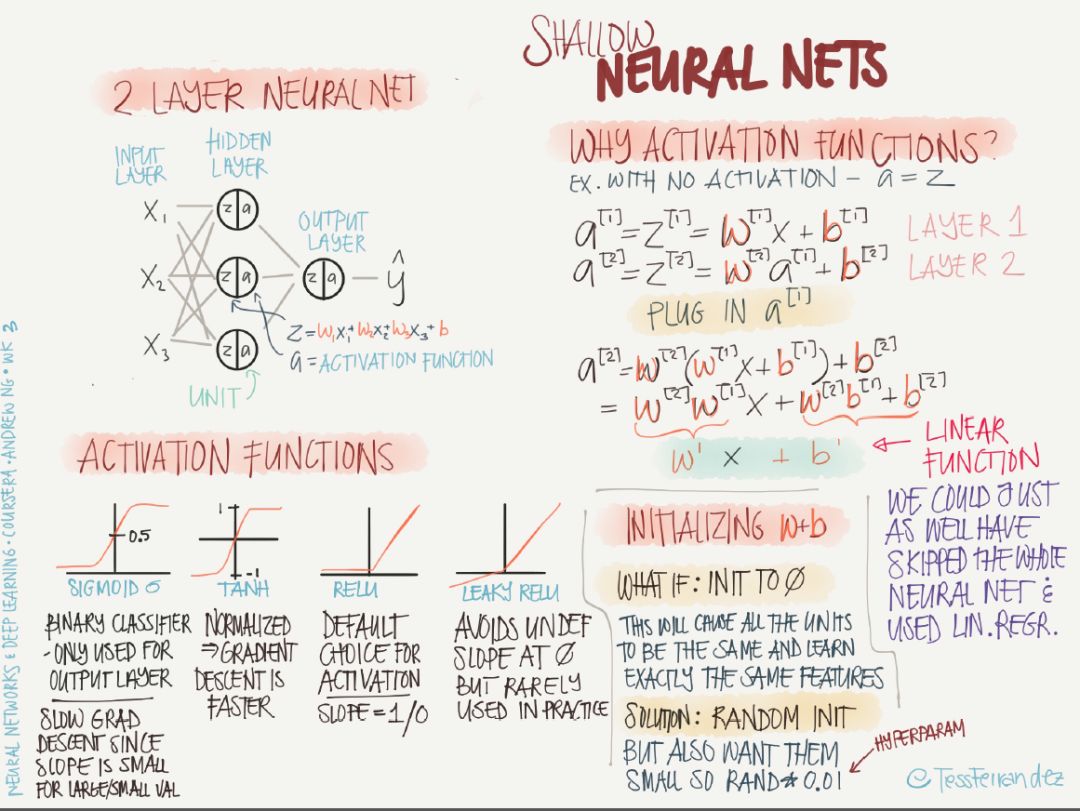 SHALLOW
NEURAL NETS
2 LAYER NEURAL NET
INPUT
LAYER
HIDDEN
LAYER
OUTPUT
LAYER
X₁
X₂
X₃
z|a
z|a
z|a
z|a
ŷ
Z = W₁X₁ + W₂X₂ + W₃X₃ + b
a = ACTIVATION FUNCTION
UNIT
ACTIVATION FUNCTIONS
0.5
SIGMOID σ
BINARY CLASSIFIER
- ONLY USED FOR
OUTPUT LAYER
SLOW GRAD
DESCENT SINCE
SLOPE IS SMALL
FOR LARGE/SMALL VAL
1
-1
TANH
NORMALIZED
⇒ GRADIENT
DESCENT IS
FASTER
RELU
DEFAULT
CHOICE FOR
ACTIVATION
SLOPE = 1/0
LEAKY RELU
AVOIDS UNDEF
SLOPE AT 0
BUT RARELY
USED IN PRACTICE
WHY ACTIVATION FUNCTIONS?
EX. WITH NO ACTIVATION - a = Z
a^[1] = Z^[1] = W^[1]X + b^[1] LAYER 1
a^[2] = Z^[2] = W^[2]a^[1] + b^[2] LAYER 2
PLUG IN a^[1]
a^[2] = W^[2](W^[1]X + b^[1]) + b^[2]
= W^[2]W^[1]X + W^[2]b^[1] + b^[2]
W' X + b'
LINEAR
FUNCTION
WE COULD JUST
AS WELL HAVE
SKIPPED THE WHOLE
NEURAL NET &
USED LIN. REGR.
INITIALIZING W+b
WHAT IF: INIT TO 0
THIS WILL CAUSE ALL THE UNITS
TO BE THE SAME AND LEARN
EXACTLY THE SAME FEATURES
SOLUTION: RANDOM INIT
BUT ALSO WANT THEM
SMALL SO RAND * 0.01
HYPERPARAM
@TessFerrandez
NEURAL NETWORKS & DEEP LEARNING · COURSERA · ANDREW NG · WK 3